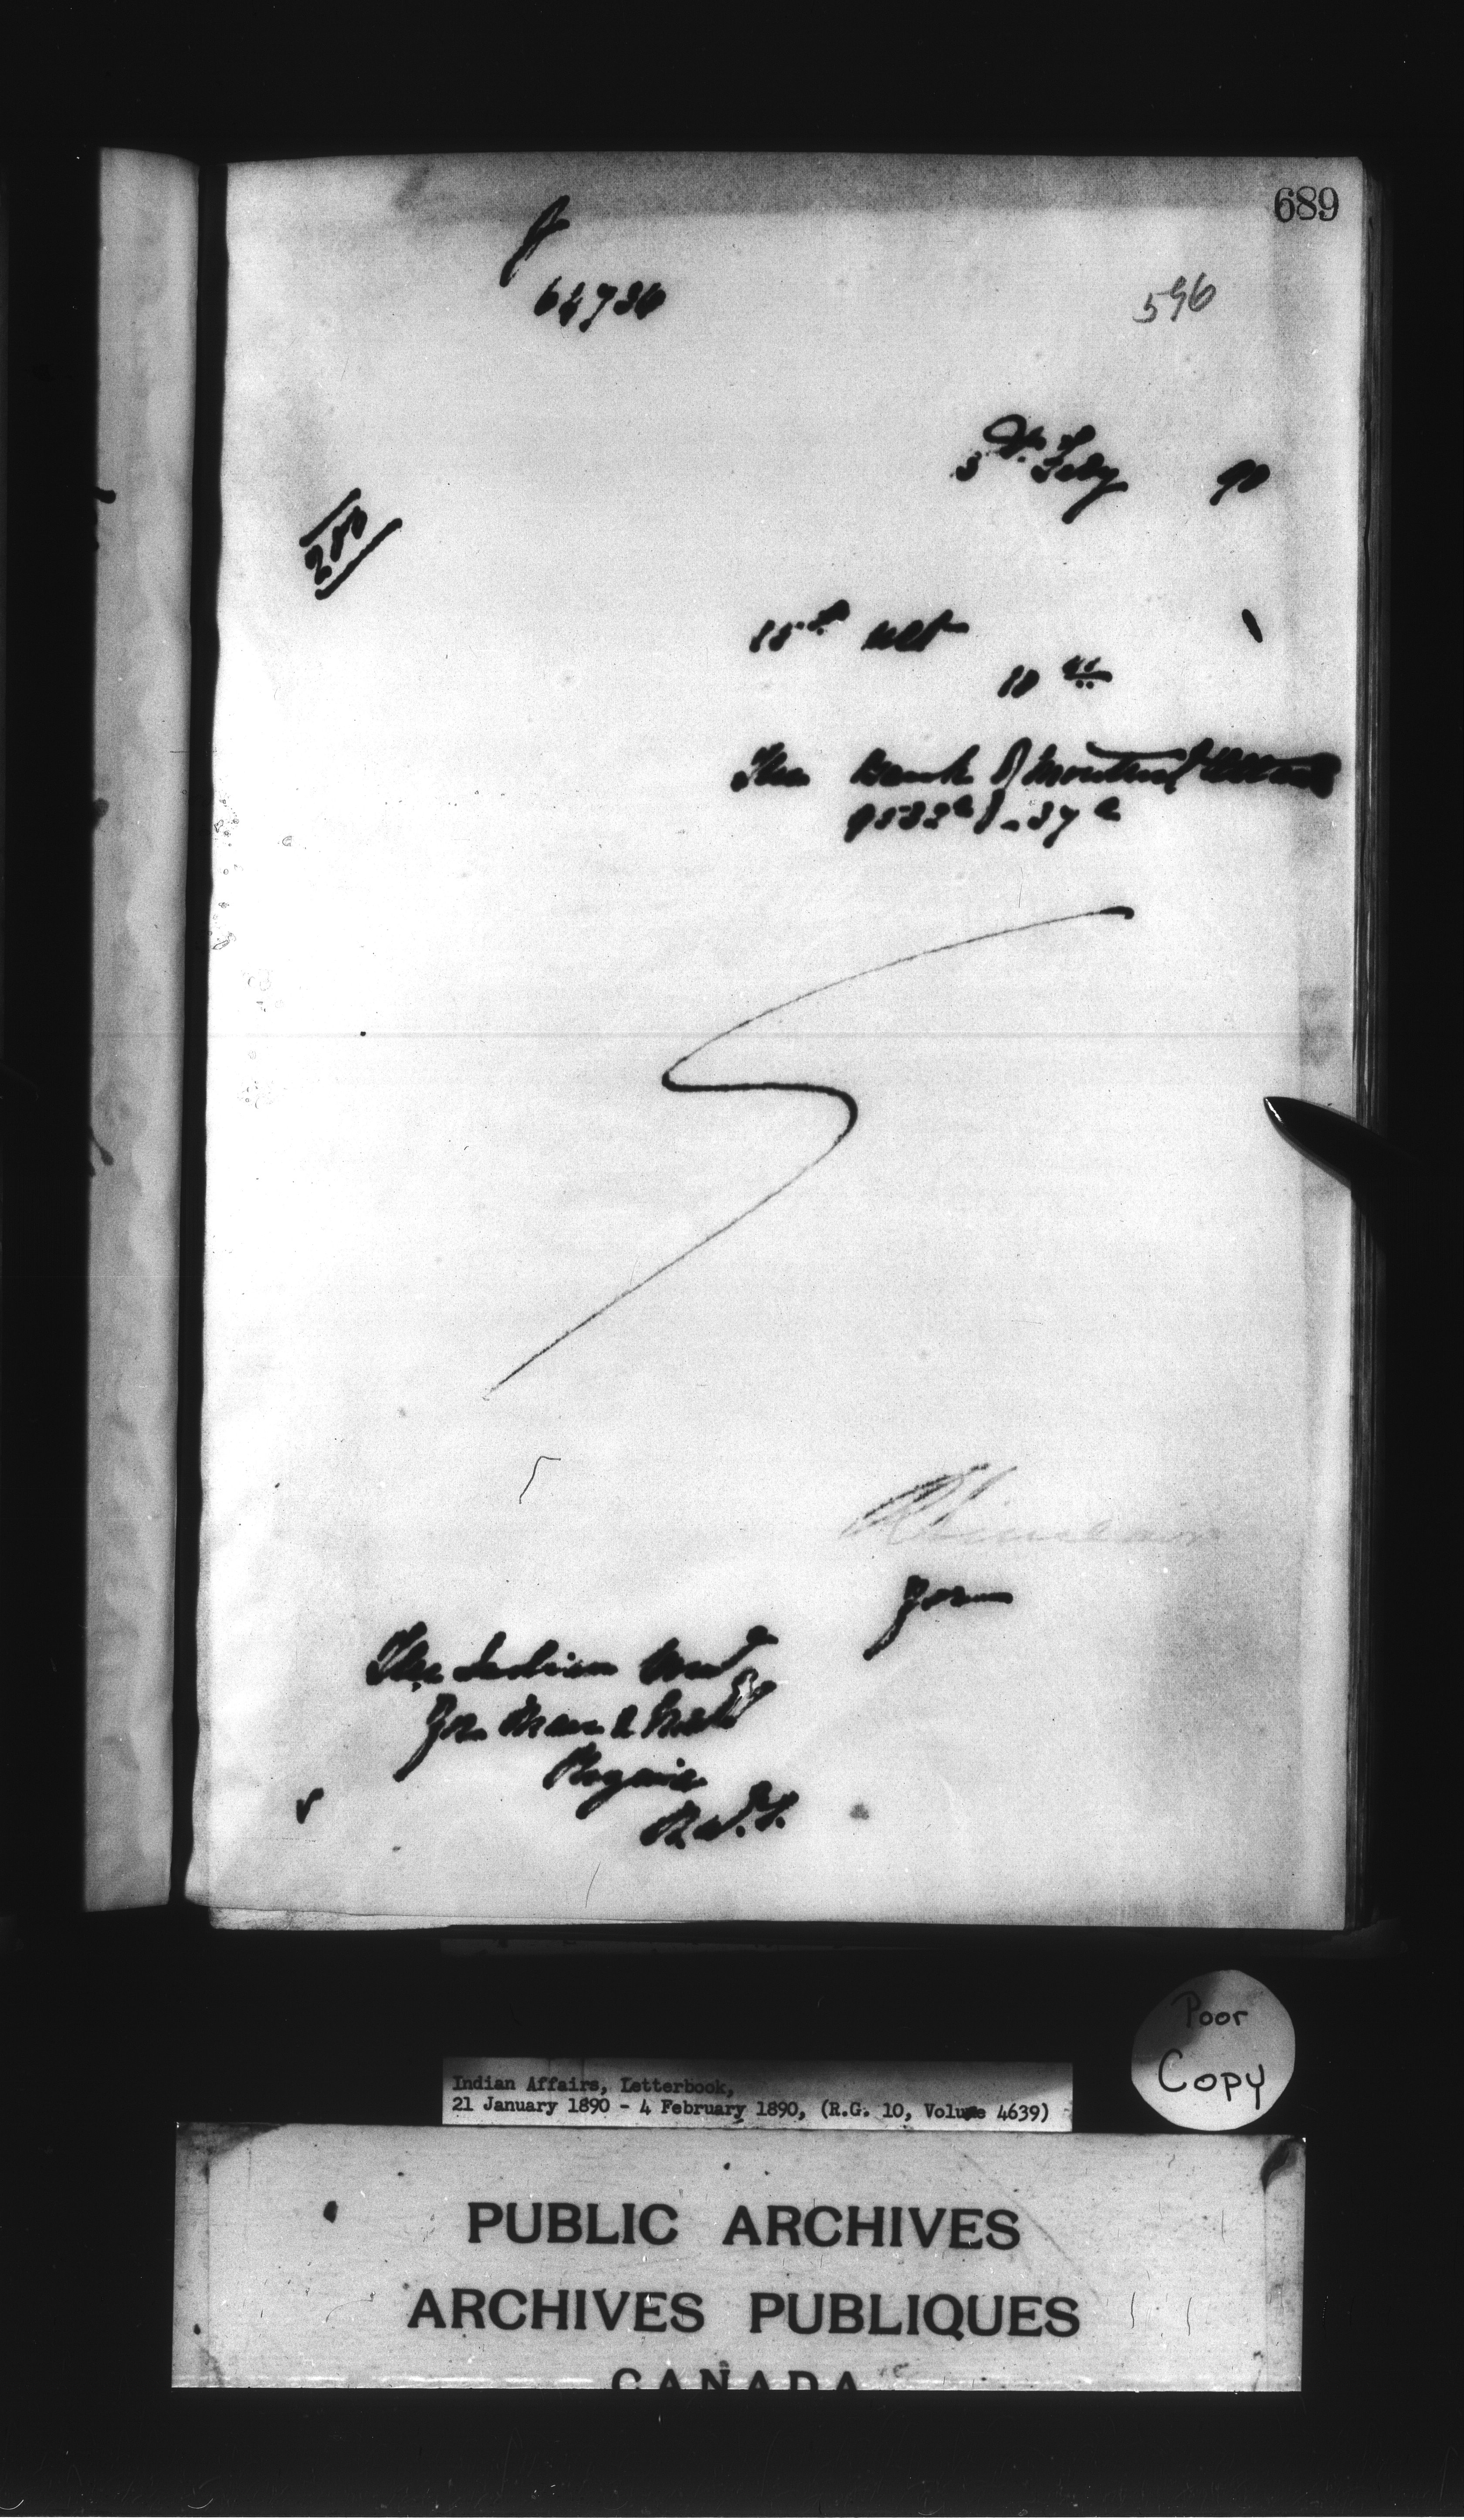 689
64736
596
3rd Feby 90
200
15th ult
10
The Bank of Montreal
for
The Indian
for Man &
Regina
N.W.T.
Poor
Copy
Indian Affairs, Letterbook,
21 January 1890 - 4 February 1890, (R.G. 10, Volume 4639)
PUBLIC ARCHIVES
ARCHIVES PUBLIQUES
CANADA